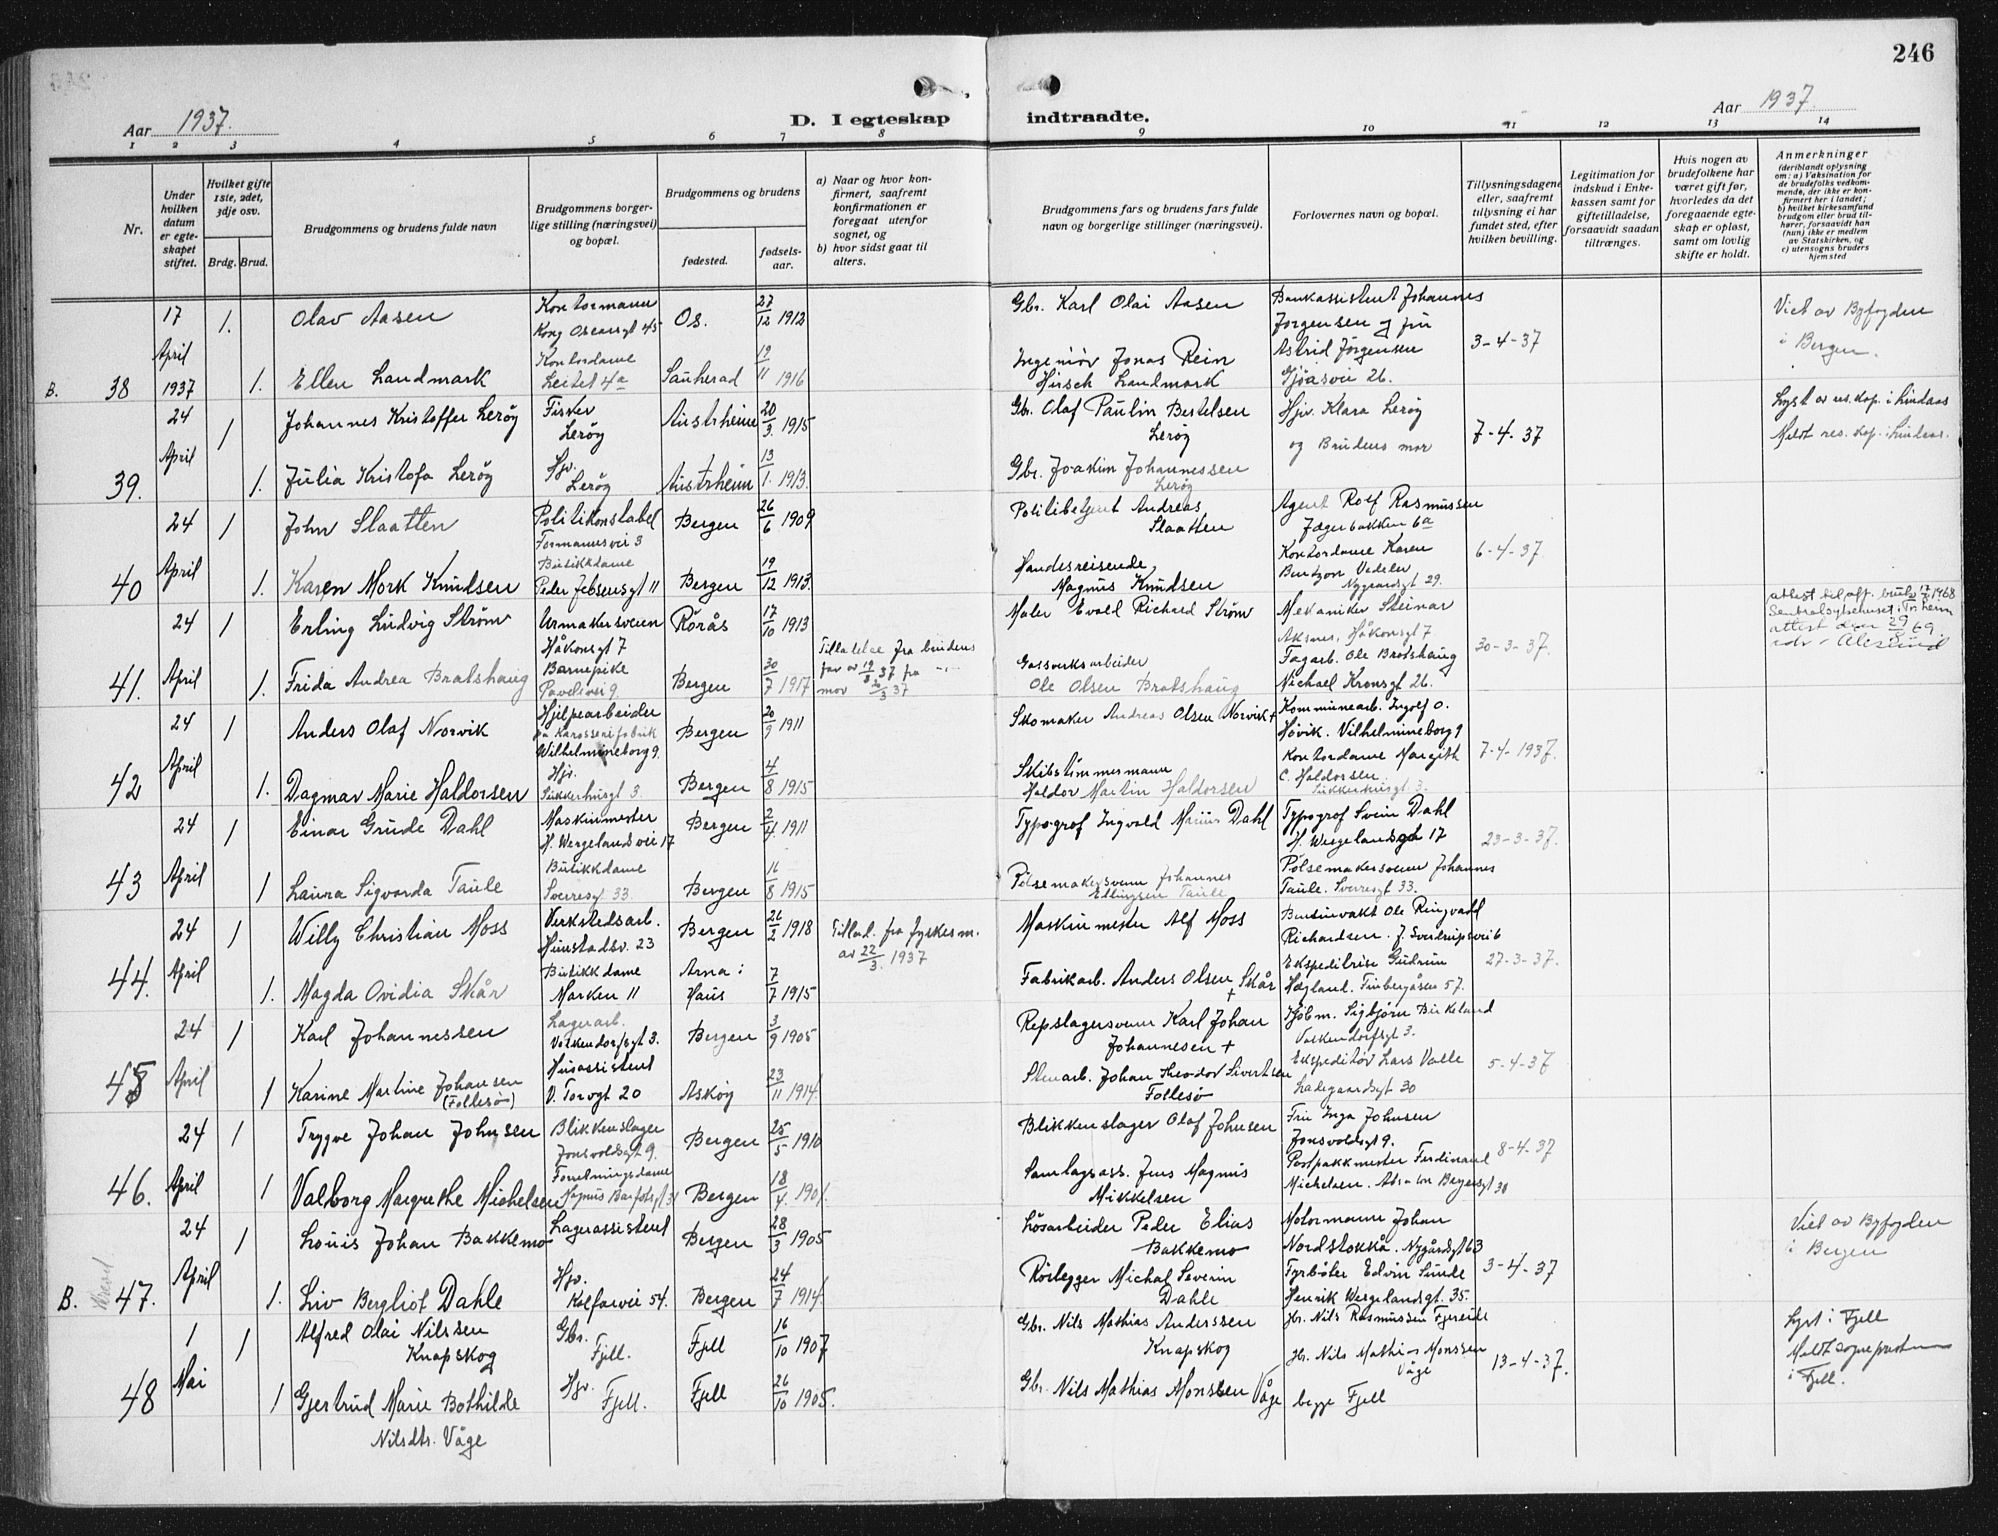 246
Aar 1937.
D. I egteskap indtraadte.
Aar 1937.
1 2 3 4 5 6 7 8 9 10 11 12 13 14
Nr.
Under hvilken datum er egteskapet stiftet.
Hvilket gifte 1ste, 2det, 3dje osv.
Brdg. Brud.
Brudgommens og brudens fulde navn
Brudgommens borgerlige stilling (næringsvei) og bopæl.
Brudgommens og brudens
fødested.
fødselsaar.
a) Naar og hvor konfirmert, saafremt konfirmationen er foregaat utenfor sognet, og
b) hvor sidst gaat til alters.
Brudgommens fars og brudens fars fulde navn og borgerlige stillinger (næringsvei).
Forlovernes navn og bopæl.
Tillysningsdagene eller, saafremt tillysning ei har fundet sted, efter hvilken bevilling.
Legitimation for indskud i Enkekassen samt for giftetilladelse, forsaavidt saadan tiltrænges.
Hvis nogen av brudefolkene har været gift før, hvorledes da det foregaaende egteskap er opløst, samt om lovlig skifte er holdt.
Anmerkninger
(deriblandt oplysning om: a) Vaksination for de brudefolks vedkommende, der ikke er konfirmert her i landet;
b) hvilket kirkesamfund brudgom eller brud tilhører, forsaavidt han (hun) ikke er medlem av Statskirken, og
c) utensogns bruders hjemsted
B. 38 17 April 1937
1. Olav Aasen Kontormann Kong Oscarsgt 45 Os. 27/12 1912 Gbr. Karl Olai Aasen Bankassistent Johannes Jørgensen og fru 3-4-37 Viet av Byfogden i Bergen.
1. Ellen Landmark Kontordame Leitet 4a Sauherad 19/11 1916 Ingeniør Jonas Rein Hirsch Landmark Astrid Jørgensen Gjøasvei 26.
39. 24 April
1 Johannes Kristoffer Lerøy Fisker Lerøy Austrheim 20/3 1915 Gbr. Olaf Paulin Bertelsen Lerøy Hjv. Klara Lerøy 7-4-37 Lyst av res. kap. i Lindaas
1. Julia Kristofa Lerøy Hjv. Lerøy Austrheim 13/1 1913. Gbr. Joakim Johannessen Lerøy og Brudens mor Meldt res. kap. i Lindaas.
40 24 April
1 John Slaatten Politikonstabel Formannsvei 3 Bergen 26/6 1909 Politibetjent Andreas Slaatten Agent Rolf Rasmussen Jægerbakken 6a 6-4-37.
1. Karen Mork Knudsen Butikkdame Peder Jebsensgt 11 Bergen 19/12 1913. Handelsreisende Magnus Knudsen Kontordame Karen Bentzon Vedeler Nygaardsgt 29.
41. 24 April
1 Erling Ludvig Strøm Urmakersvenn Håkonsgt 7 Rørås 17/10 1913 Maler Evald Richard Strøm Mekaniker Steinar Aksnes, Håkonsgt 7 30-3-37.
1. Frida Andrea Bratshaug Barnepike Bergen 30/7 1917 Tilladelse fra brudens far av 19/3 37 fra mor 20/3 37 Gassverksarbeider Ole Olsen Bratshaug Fagarb. Ole Bratshaug Michael Kronsgt 26.
42 24 April
1 Anders Olaf Norvik Hjelpearbeider på Karosserifabrik Wilhelmineborg 9. Bergen 20/9 1911 Skomaker Andreas Olsen Norvik + Kommunearb. Ingolf O. Høvik. Vilhelmineborg 9 7-4-1937.
1. Dagmar Marie Haldorsen Hjv. Sukkerhusgt 3. Bergen 4/8 1915 Skibstimmermann Haldor Martin Haldorsen Kontordame Margith C. Haldorsen Sukkerhusgt 3.
43 24 April
1 Einar Grude Dahl Maskinmester H. Wergelandsvei 17 Bergen 2/4 1911 Typograf Ingvald Marius Dahl Typograf Svein Dahl H. Wergelandsgt 17 23-3-37.
1 Laura Sigvarda Taule Butikkdame Sverresgt 33 Bergen 16/8 1915 Pølsemakersvenn Johannes Ellingsen Taule Pølsemakersvenn Johannes Taule. Sverresgt 33.
44. 24 April
1 Willy Christian Moss Verkstedsarb. Hunstadsv. 23 Bergen 26/2 1918 Tillad. fra fylkesm. av 22/3 1937 Maskinmester Alf Moss Bensinvakt Ole Ringvald Richardsen. J. Sverdrupsvei 6 27-3-37.
1. Magda Ovidia Skår Butikkdame Marken 11 Arna i Haus 7/7 1915 Fabrikarb. Anders Olsen Skår + Ekspeditrise Gudrun Hægland. Finbergåsen 57.
45 24 April
1 Karl Johannessen Lagerarb. Valkendorfsgt 3. Bergen 3/9 1905 Repslagersvenn Karl Johan Johannesen + Sigbjørn Birkeland Valkendorfsgt 3. 5-4-37
1 Karine Martine Johansen (Follesø) Husassistent V. Torvgt 20 Askøy 23/11 1914 Stenarb. Johan Theodor Sivertsen Follesø Ekspeditør Lars Valle Ladegaardsgt 30
46. 24 April
1 Trygve Johan Johnsen Blikkenslager Jonsvoldsgt 9. Bergen 25/5 1910 Blikkenslager Olaf Johnsen Fru Inga Johnsen Jonsvoldsgt 9. 8-4-37
1 Valborg Margrethe Michelsen Forretningsdame Magnus Barfotsgt 31 Bergen 18/4 1901. Samlagsass. Jens Magnus Mikkelsen Postpakkmester Ferdinand Michelsen. Absalon Beyersgt 30
B. 47. 24 April
1 Louis Johan Bakkemo Lagerassistent Bergen 28/3 1905 Løsarbeider Peder Elias Bakkemo Motormann Johan Nordstokkå. Nygårdsgt 63 3-4-37 Viet av Byfogden i Bergen
1. Liv Bergliot Dahle Hjv. Kalfarvei 54. Bergen 24/7 1914 Rørlegger Michal Severin Dahle Fyrbøter Edvin Sunde Henrik Wergelandsgt. 35.
48 1 Mai
1 Alfred Olai Nilssen Knapskog Gbr. Fjell. Fjell 16/10 1907 Gbr. Nils Mathias Anderssen Knapskog Gbr. Nils Rasmussen Fjereide 13-4-37. Lyst i Fjell
1 Gjertrud Marie Bothilde Nilsdtr. Våge Hjv. Fjell. Fjell 26/10 1905. Gbr. Nils Mathias Monssen Våge Gbr. Nils Mathias Monssen Våge begge Fjell Meldt sogneprestn i Fjell.